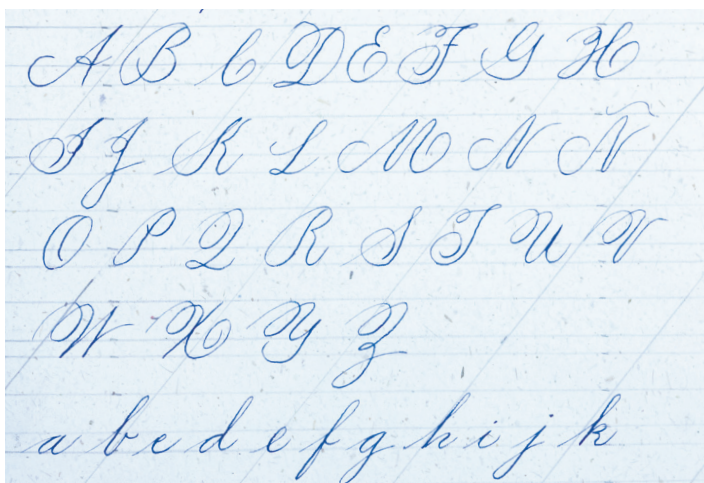 A B C D E F G H
I J K L M N Ñ
O P Q R S T U V
W X Y Z
a b c d e f g h i j k